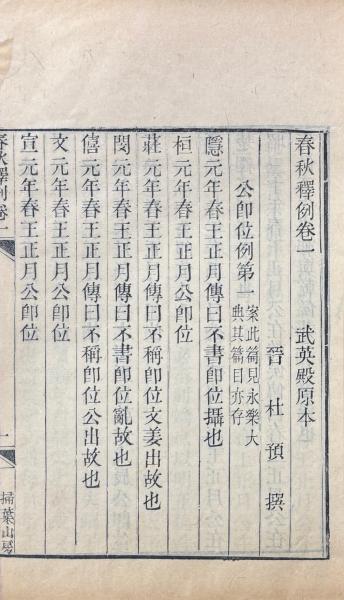 春秋釋例卷一　武英殿原本
晉杜預撰
公卽位例第一
案此篇見永樂大
典其篇目亦存
隱元年春王正月傳曰不書卽位攝也
桓元年春王正月公卽位
莊元年春王正月傳曰不稱卽位文姜出故也
閔元年春王正月傳曰不書卽位亂故也
僖元年春王正月傳曰不稱卽位公出故也
文元年春王正月公卽位
宣元年春王正月公卽位
春秋釋例卷一
一
掃葉山房